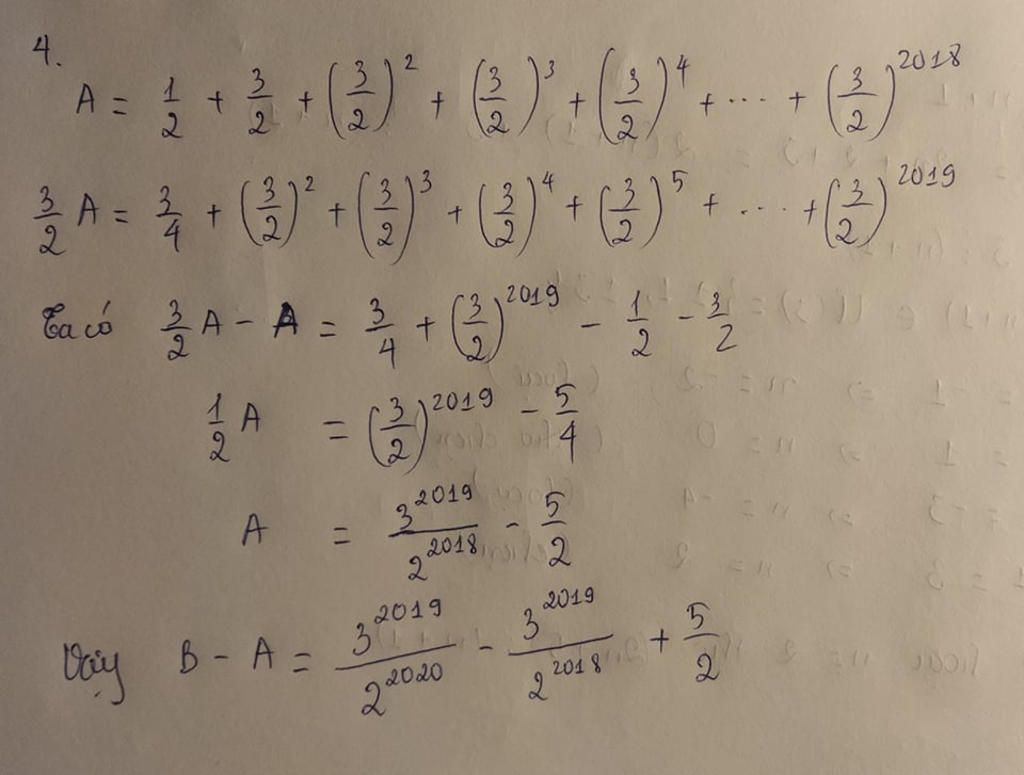 4.
A = 1/2 + 3/2 + (3/2)^2 + (3/2)^3 + (3/2)^4 + ... + (3/2)^2018
3/2 A = 3/4 + (3/2)^2 + (3/2)^3 + (3/2)^4 + (3/2)^5 + ... + (3/2)^2019
Ta có 3/2 A - A = 3/4 + (3/2)^2019 - 1/2 - 3/2
1/2 A = (3/2)^2019 - 5/4
A = 3^2019/2^2018 - 5/2
Vậy B - A = 3^2019/2^2020 - 3^2019/2^2018 + 5/2